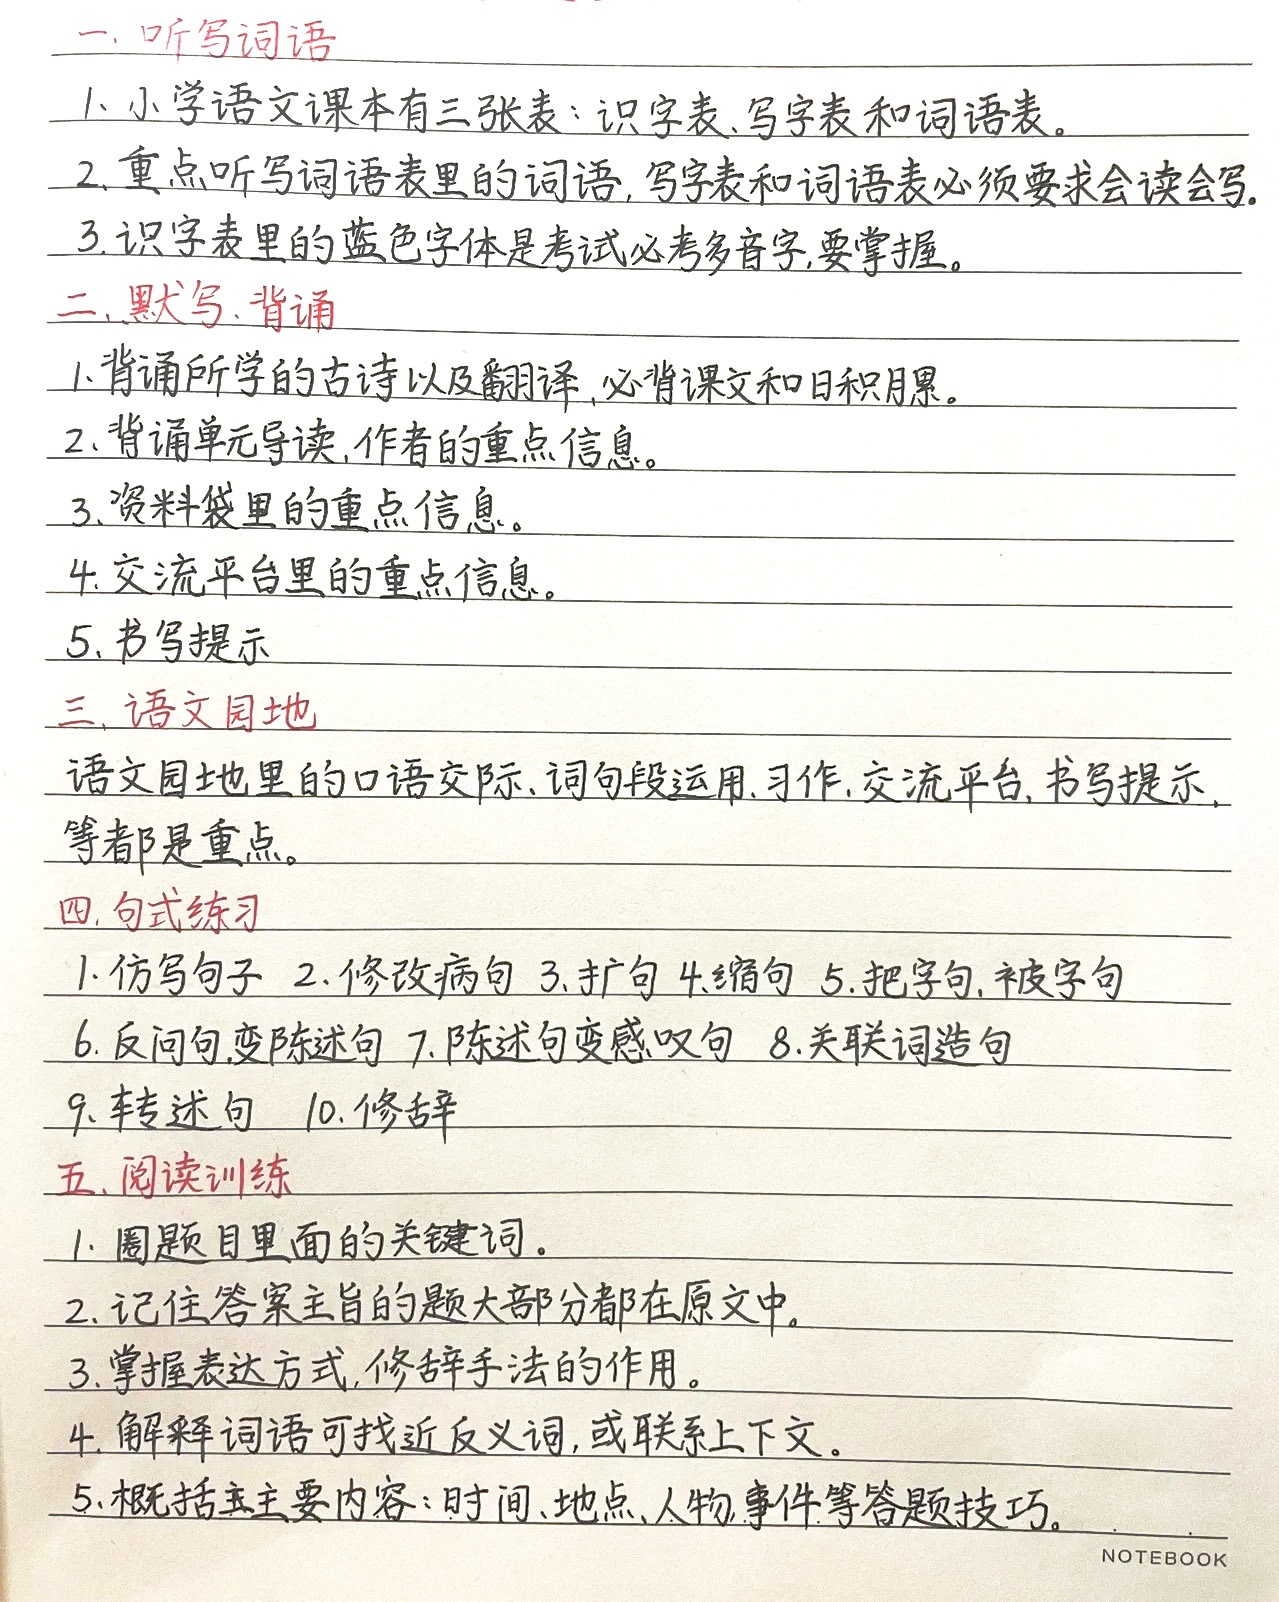 一、听写词语
1、小学语文课本有三张表：识字表、写字表和词语表。
2、重点听写词语表里的词语，写字表和词语表必须要求会读会写。
3、识字表里的蓝色字体是考试必考多音字，要掌握。
二、默写、背诵
1、背诵所学的古诗以及翻译、必背课文和日积月累。
2、背诵单元导读，作者的重点信息。
3、资料袋里的重点信息。
4、交流平台里的重点信息。
5、书写提示
三、语文园地
语文园地里的口语交际、词句段运用、习作、交流平台、书写提示，
等都是重点。
四、句式练习
1、仿写句子 2、修改病句 3、扩句 4、缩句 5、把字句、被字句
6、反问句变陈述句 7、陈述句变感叹句 8、关联词造句
9、转述句 10、修辞
五、阅读训练
1、圈题目里面的关键词。
2、记住答案主旨的题大部分都在原文中。
3、掌握表达方式，修辞手法的作用。
4、解释词语可找近反义词，或联系上下文。
5、概括主主要内容：时间、地点、人物、事件等答题技巧。
NOTEBOOK